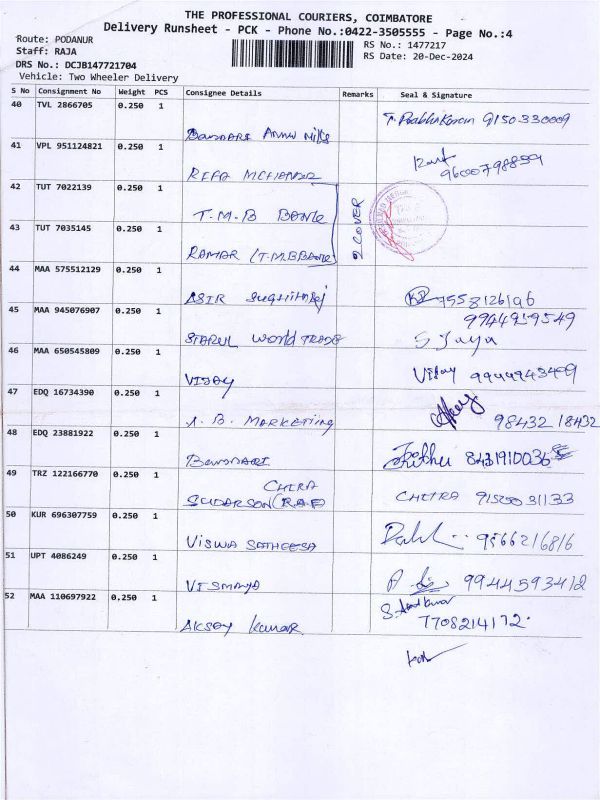 THE PROFESSIONAL COURIERS, COIMBATORE
Delivery Runsheet - PCK - Phone No.:0422-3505555 - Page No.:4
Route: PODANUR
RS No.: 1477217
Staff: RAJA
RS Date: 20-Dec-2024
DRS No.: DCJB147721704
Vehicle: Two Wheeler Delivery
S No Consignment No Weight PCS Consignee Details Remarks Seal & Signature
40 TVL 2866705 0.250 1 T. Prabhakaran 9150330009
41 VPL 951124821 0.250 1 9600798859
42 TUT 7022139 0.250 1 T.M.B BANK 2 COVER
43 TUT 7035145 0.250 1 RAMAR (T.M.B BANK)
44 MAA 575512129 0.250 1 ASIR 7558126196
45 MAA 945076907 0.250 1 World TRADE 9944959549
S Jaya
46 MAA 650545809 0.250 1 VIJAY Vijay 9944943409
47 EDQ 16734390 0.250 1 B. MARKETING 98432 18432
48 EDQ 23881922 0.250 1 8431910036
49 TRZ 122166770 0.250 1 CHITRA
SUDARSON (R.A.F) CHITRA
50 KUR 696307759 0.250 1 VISWA SATHEESA 9566216816
51 UPT 4086249 0.250 1 VISMAYA 9944593412
52 MAA 110697922 0.250 1 AKSAY Kumar 7708214172